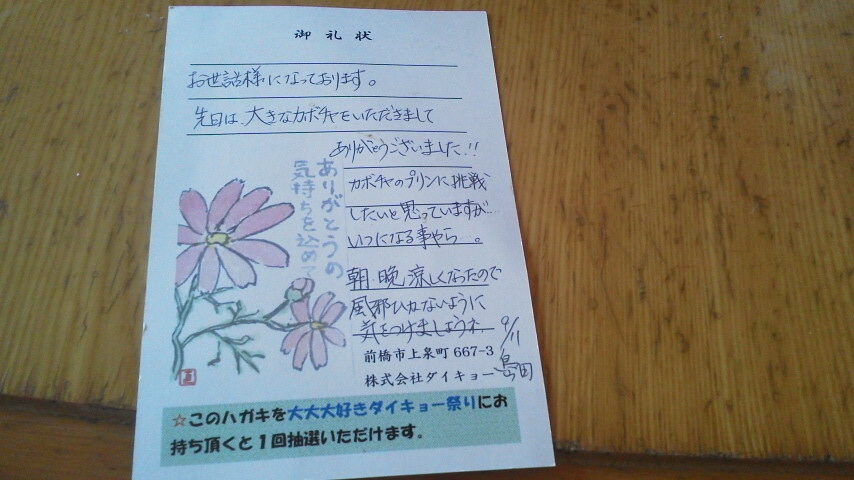 御礼状
お世話様になっております。
先日は、大きなカボチャをいただきまして
ありがとうございました!!
カボチャのプリンに挑戦
したいと思っていますが…
いつになる事やら。
朝、晩涼しくなったので
風邪ひかないように
気をつけましょうネ。
9/11
ありがとうの
気持ちを込めて
前橋市上泉町667-3
株式会社ダイキョー 島田
☆このハガキを大大大好きダイキョー祭りにお
持ち頂くと1回抽選いただけます。